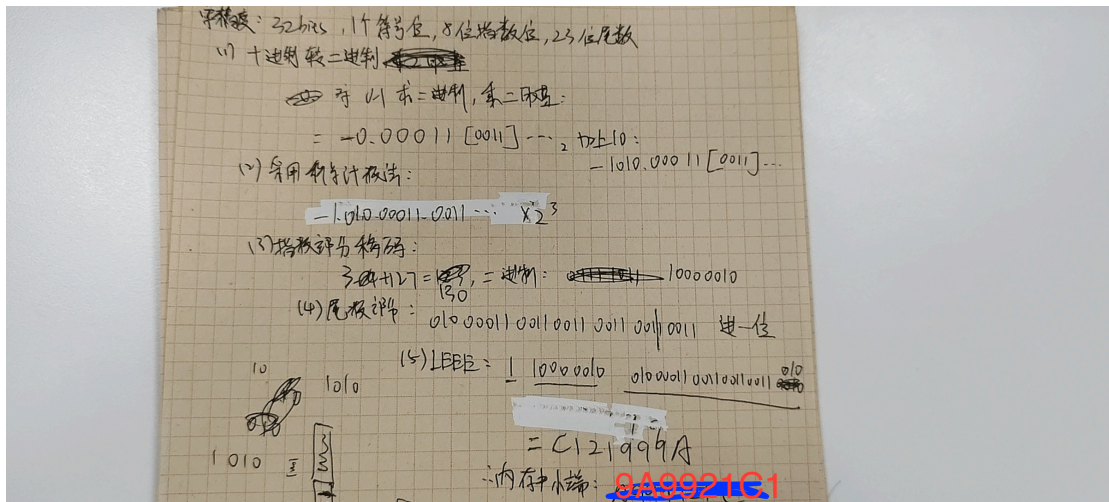 单精度：32bits，1个符号位，8位指数位，23位尾数
(1) 十进制转二进制
对 0.1 求二进制，乘二取整：
= -0.00011 [0011] ...₂ 加上10：
-1010.00011 [0011]...
(2) 采用科学计数法：
-1.010 00011 0011 ... ×2³
(3) 指数部分移码：
3+127=130，二进制： 10000010
(4) 尾数部分： 010 00011 0011 0011 0011 0011 0011 进一位
(5) IEEE： 1 10000010 01000011001100110011 010
= C121999A
∴内存中小端： 9A9921C1
10
1010
1010